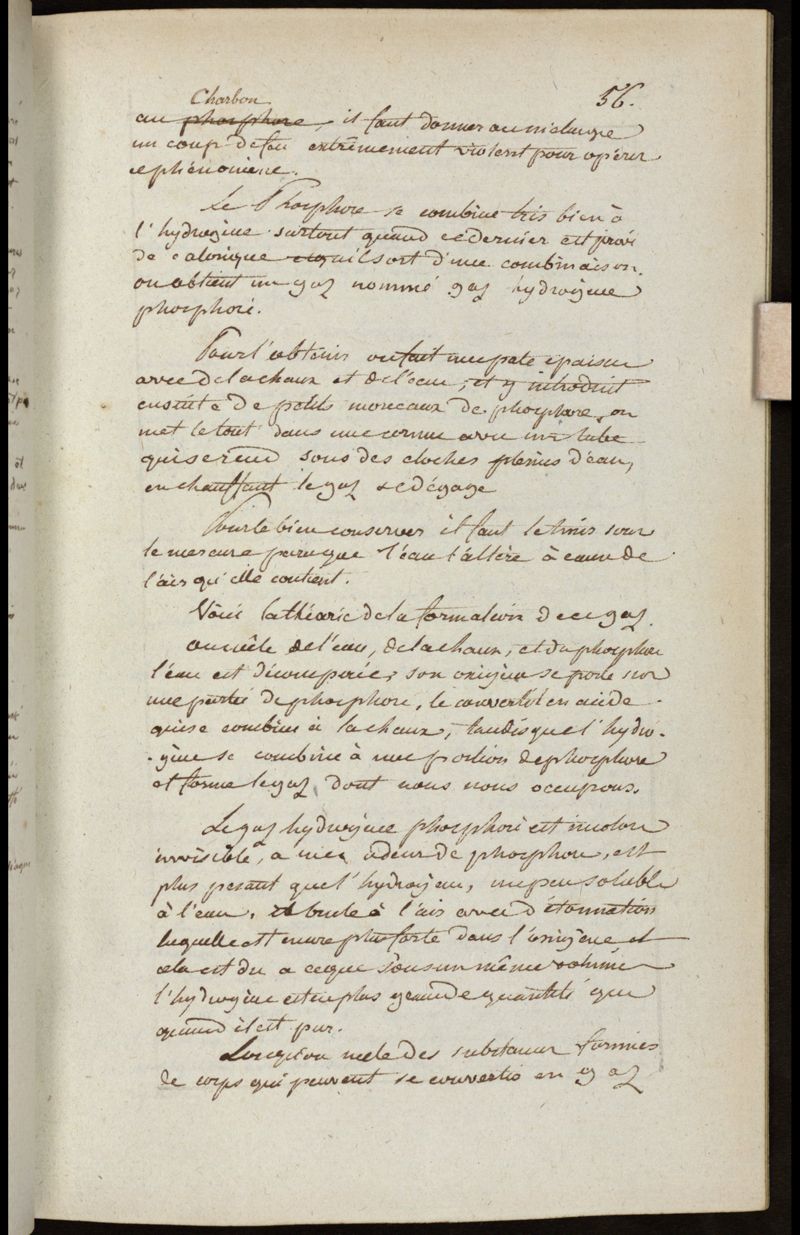 56.
Charbon
au phosphore, il faut donner au mélange
un coup de feu extrêmement violent pour opérer
ce phénomène.
Le Phosphore se combine très bien à
l'hydrogène surtout quand ce dernier est privé
de calorique ou qu'il sort d'une combinaison.
on obtient un gaz nommé gaz hydrogène
phosphoré.
Pour l'obtenir on fait une pate épaisse
avec de la chaux et de l'eau, et y introduit
ensuite de petits morceaux de phosphore, on
met le tout dans une cornue avec un tube
qui se rend sous des cloches pleines d'eau,
en chauffant le gaz se dégage
Pour le bien conserver il faut le tenir sous
le mercure parceque l'eau l'altère à cause de
l'air qu'elle contient.
Voici la théorie de la formation de ce gaz.
on mêle de l'eau, de la chaux, et du phosphore
l'eau est décomposée, son oxigène se porte sur
une partie de phosphore, le convertit en acide
qui se combine à la chaux, tandis que l'hydro-
-gène se combine à une portion de phosphore
et forme le gaz dont nous nous occupons.
Le gaz hydrogène phosphoré est incolore
invisible, a une odeur de phosphore, est
plus pesant que l'hydrogène, un peu soluble
à l'eau. il brule à l'air avec détonnation
laquelle est encore plus forte dans l'oxigène et
cela est du a ceque sous un même volume
l'hydrogène est en plus grande quantité que
quand il est pur.
Lorsqu'on mele des substances formées
de corps qui peuvent se convertir en gaz